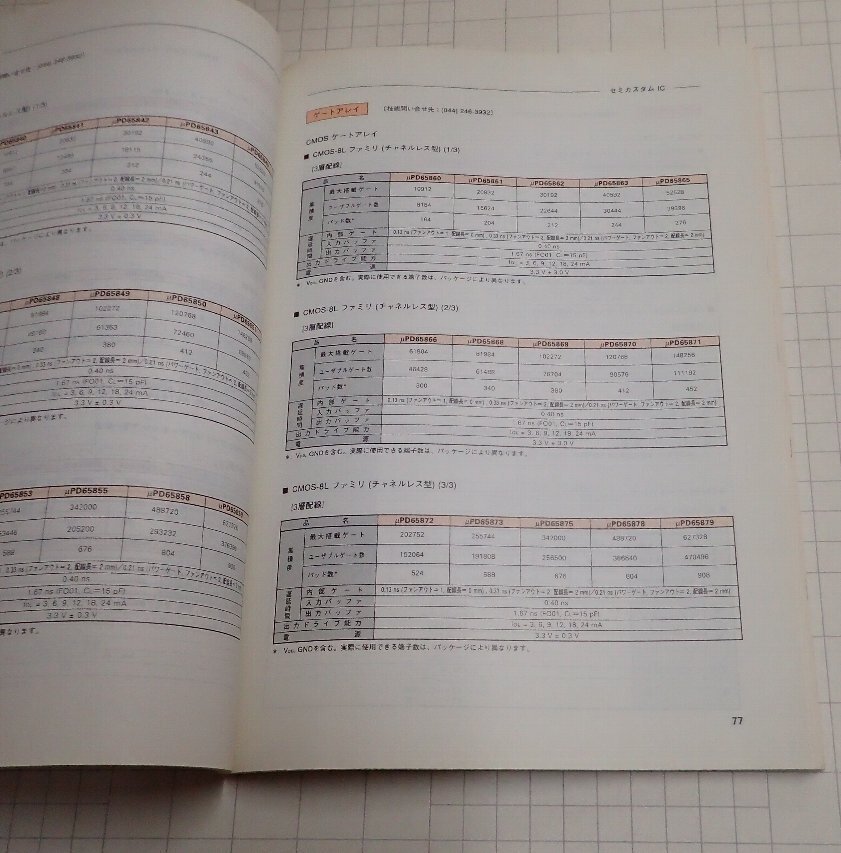 μPD65841 μPD65842 μPD65843
30192
212 244
0.40 ns
1.67 ns (FO01, CL=15 pF)
IOL = 3, 6, 9, 12, 18, 24 mA
3.3 V ± 0.3 V
(2/3)
μPD65848 μPD65849 μPD65850
81984 102272 120768
61363 72460
340 380 412
0.40 ns
1.67 ns (FO01, CL=15 pF)
IOL = 3, 6, 9, 12, 18, 24 mA
3.3 V ± 0.3 V
ジにより異なります。
PD65853 μPD65855 μPD65858
255744 342000 488720
205200 293232
588 676 804 908
0.40 ns
1.67 ns (FO01, CL=15 pF)
IOL = 3, 6, 9, 12, 18, 24 mA
3.3 V ± 0.3 V
異なります。
セミカスタム IC
ゲートアレイ [技術問い合せ先:(044) 246-3932]
CMOS ゲートアレイ
■ CMOS-8L ファミリ (チャネルレス型) (1/3)
[3層配線]
品名 μPD65860 μPD65861 μPD65862 μPD65863 μPD65865
集積度 最大搭載ゲート 10912 20832 30192 40832
ユーザブルゲート数 8184 15624 22644 30444
パッド数* 164 204 212 244 276
遅延時間 内部ゲート 0.13 ns (ファンアウト=1, 配線長=0 mm), 0.33 ns (ファンアウト=2, 配線長=2 mm)/0.21 ns (パワーゲート, ファンアウト=2, 配線長=2 mm)
入力バッファ 0.40 ns
出力バッファ 1.67 ns (FO01, CL=15 pF)
出力ドライブ能力 IOL = 3, 6, 9, 12, 18, 24 mA
電源 3.3 V ± 0.3 V
* VDD, GNDを含む。実際に使用できる端子数は、パッケージにより異なります。
■ CMOS-8L ファミリ (チャネルレス型) (2/3)
[3層配線]
品名 μPD65866 μPD65868 μPD65869 μPD65870 μPD65871
集積度 最大搭載ゲート 61904 81984 102272 120768 148256
ユーザブルゲート数 46428 61488 76704 90576 111192
パッド数* 300 340 380 412 452
遅延時間 内部ゲート 0.13 ns (ファンアウト=1, 配線長=0 mm), 0.33 ns (ファンアウト=2, 配線長=2 mm)/0.21 ns (パワーゲート, ファンアウト=2, 配線長=2 mm)
入力バッファ 0.40 ns
出力バッファ 1.67 ns (FO01, CL=15 pF)
出力ドライブ能力 IOL = 3, 6, 9, 12, 18, 24 mA
電源 3.3 V ± 0.3 V
* VDD, GNDを含む。実際に使用できる端子数は、パッケージにより異なります。
■ CMOS-8L ファミリ (チャネルレス型) (3/3)
[3層配線]
品名 μPD65872 μPD65873 μPD65875 μPD65878 μPD65879
集積度 最大搭載ゲート 202752 255744 342000 488720 627328
ユーザブルゲート数 152064 191808 256500 366540 470496
パッド数* 524 588 676 804 908
遅延時間 内部ゲート 0.13 ns (ファンアウト=1, 配線長=0 mm), 0.33 ns (ファンアウト=2, 配線長=2 mm)/0.21 ns (パワーゲート, ファンアウト=2, 配線長=2 mm)
入力バッファ 0.40 ns
出力バッファ 1.67 ns (FO01, CL=15 pF)
出力ドライブ能力 IOL = 3, 6, 9, 12, 18, 24 mA
電源 3.3 V ± 0.3 V
* VDD, GNDを含む。実際に使用できる端子数は、パッケージにより異なります。
77